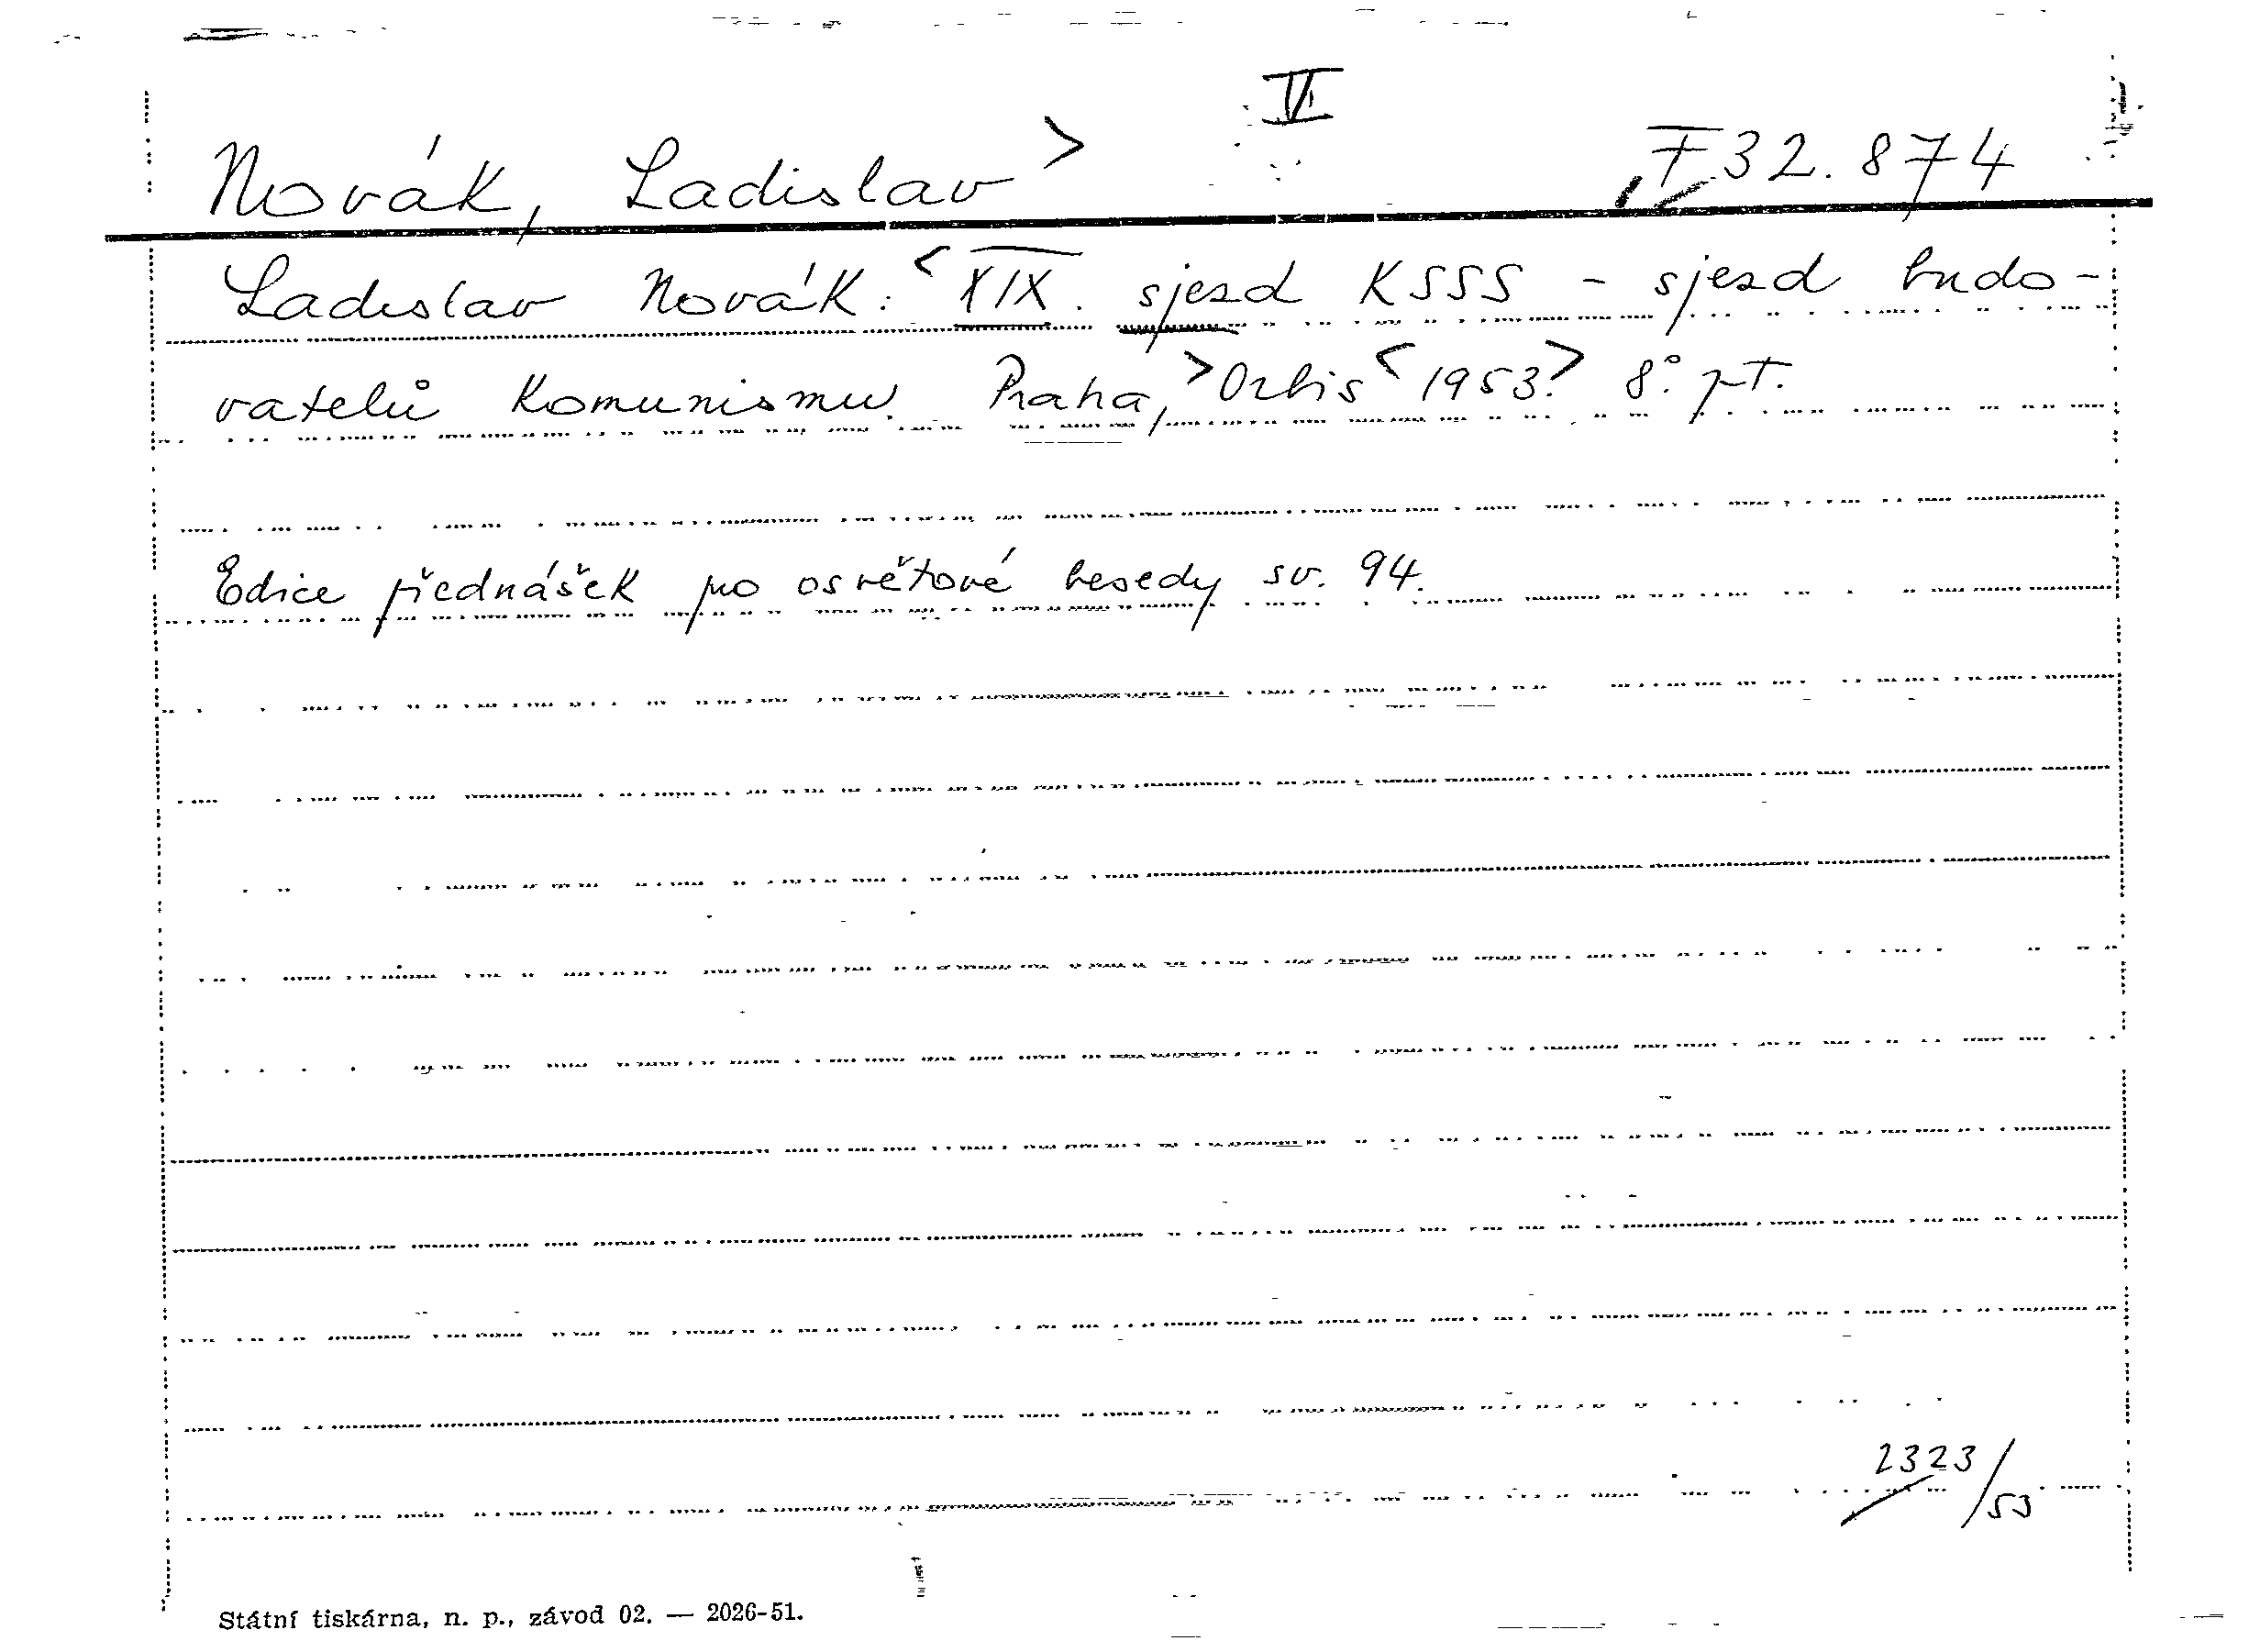 VI
Novák, Ladislav > F 32.874
Ladislav Novák: <XIX. sjezd KSSS - sjezd budo-
vatelů komunismu. Praha, >Orbis< 1953.> 8° pt.
Edice přednášek pro osvětové besedy sv. 94.
2323/53
Státní tiskárna, n. p., závod 02. — 2026-51.